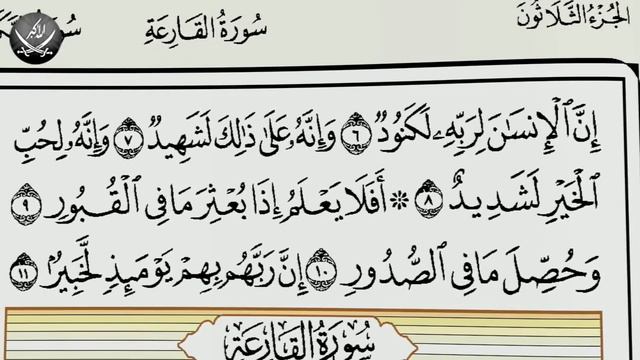 الجُزْءُ الثَّلَاثُونَ سُورَةُ القَارِعَةِ
إِنَّ ٱلْإِنسَٰنَ لِرَبِّهِۦ لَكَنُودٌ ٦ وَإِنَّهُۥ عَلَىٰ ذَٰلِكَ لَشَهِيدٌ ٧ وَإِنَّهُۥ لِحُبِّ
ٱلْخَيْرِ لَشَدِيدٌ ٨ ۞ أَفَلَا يَعْلَمُ إِذَا بُعْثِرَ مَا فِى ٱلْقُبُورِ ٩
وَحُصِّلَ مَا فِى ٱلصُّدُورِ ١٠ إِنَّ رَبَّهُم بِهِمْ يَوْمَئِذٍ لَّخَبِيرٌ ١١
سُورَةُ القَارِعَةِ